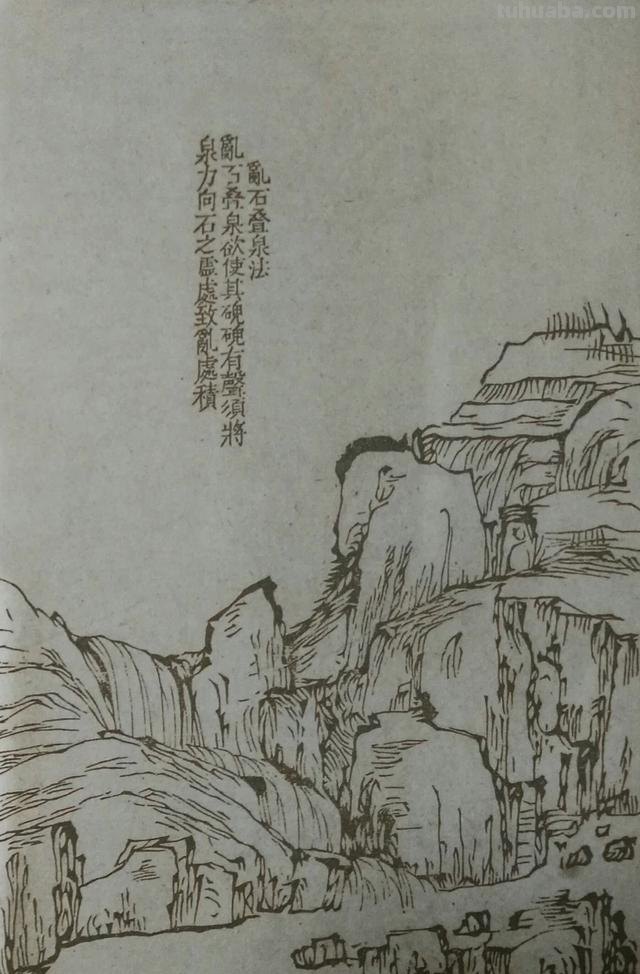 亂石疊泉法
亂石疊泉欲使其硍硍有聲須將
泉力向石之虛處致亂處積
tuhuaba.com